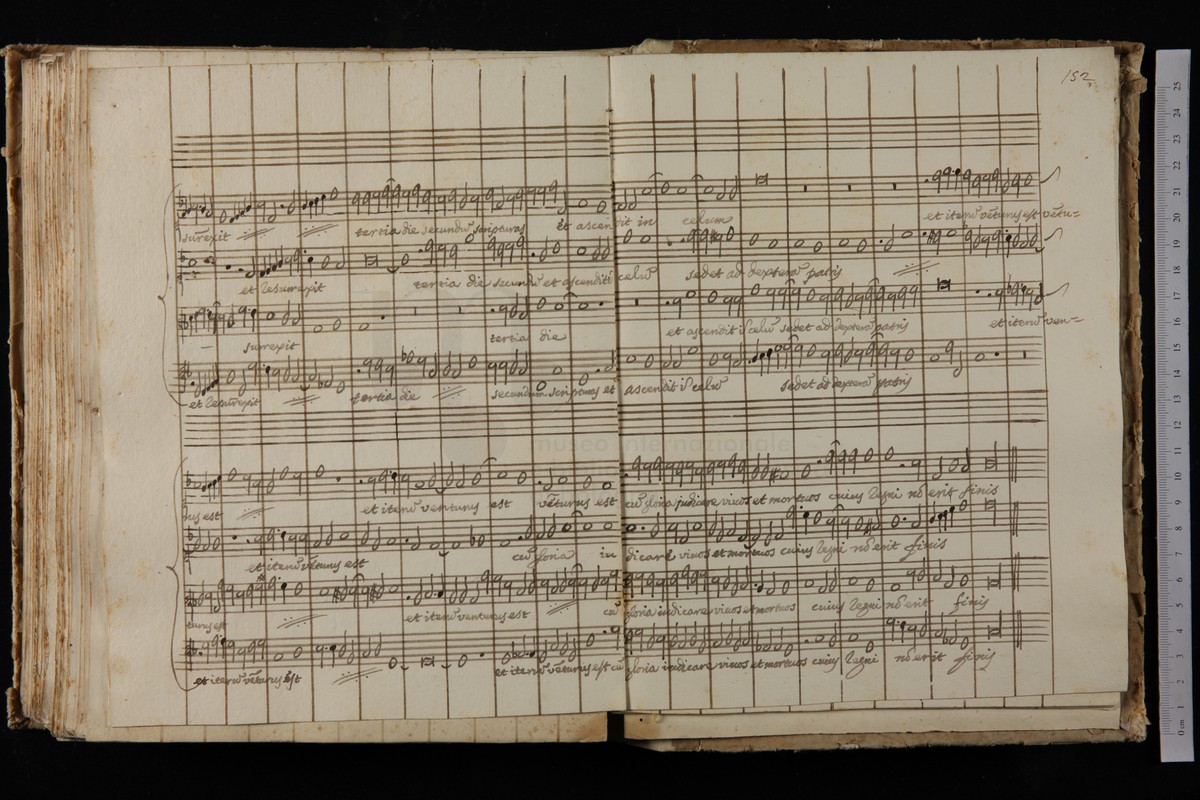 152
surrexit tertia die secundū scripturas et ascendit in celum et iterū vēturus est vētu=
et resurrexit tertia die secundū et ascendit ī celū sedet ad dexterā patris
surrexit tertia die et ascendit ī celū sedet ad dexterā patris et iterū ven=
et resurrexit tertia die secundum scripturas et ascendit ī celū sedet ad dexterā patris
museo internazionale
rus est et iterū venturus est vēturus est cū gloria judicare vivos et mortuos cuius regni nō erit finis
et iterū vēturus est cū gloria iu dicare vivos et mortuos cuius regni nō erit finis
turus est et iterū venturus est cū gloria iudicare vivos et mortuos cuius regni nō erit finis
et iterū vēturus est et iterū vēturus est cū gloria iudicare vivos et mortuos cuius regni nō erit finis
0 cm 1 2 3 4 5 6 7 8 9 10 11 12 13 14 15 16 17 18 19 20 21 22 23 24 25